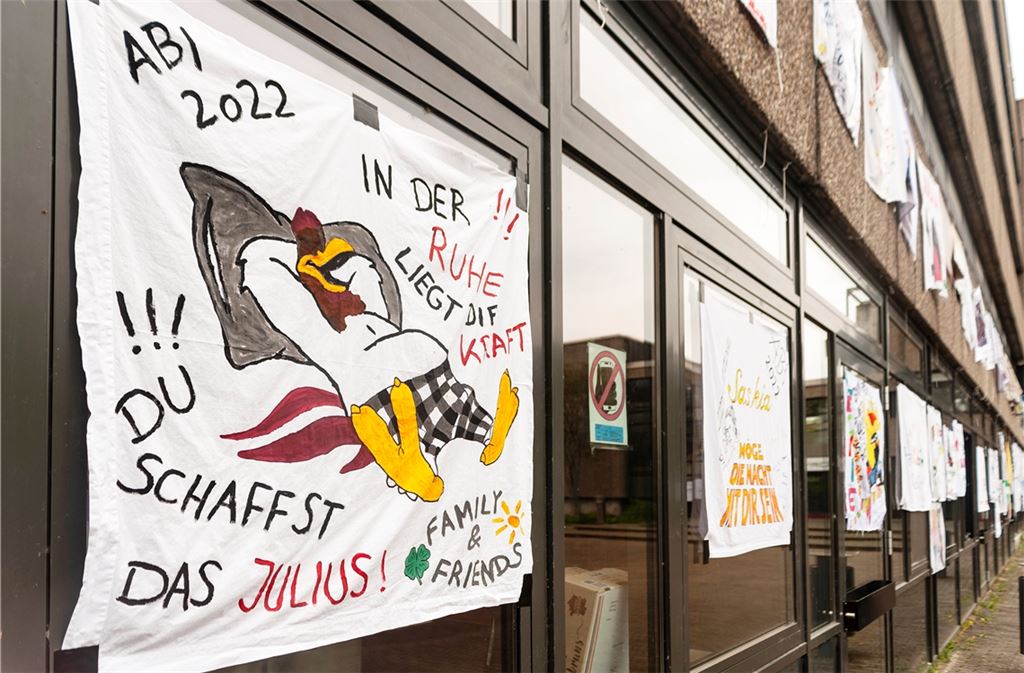 ABI
2022
IN DER
!!!
RUHE
LIEGT DIE
KRAFT
!!!
DU
SCHAFFST
DAS JULIUS!
FAMILY
&
FRIENDS
Saskia
MÖGE
DIE MACHT
MIT DIR SEIN